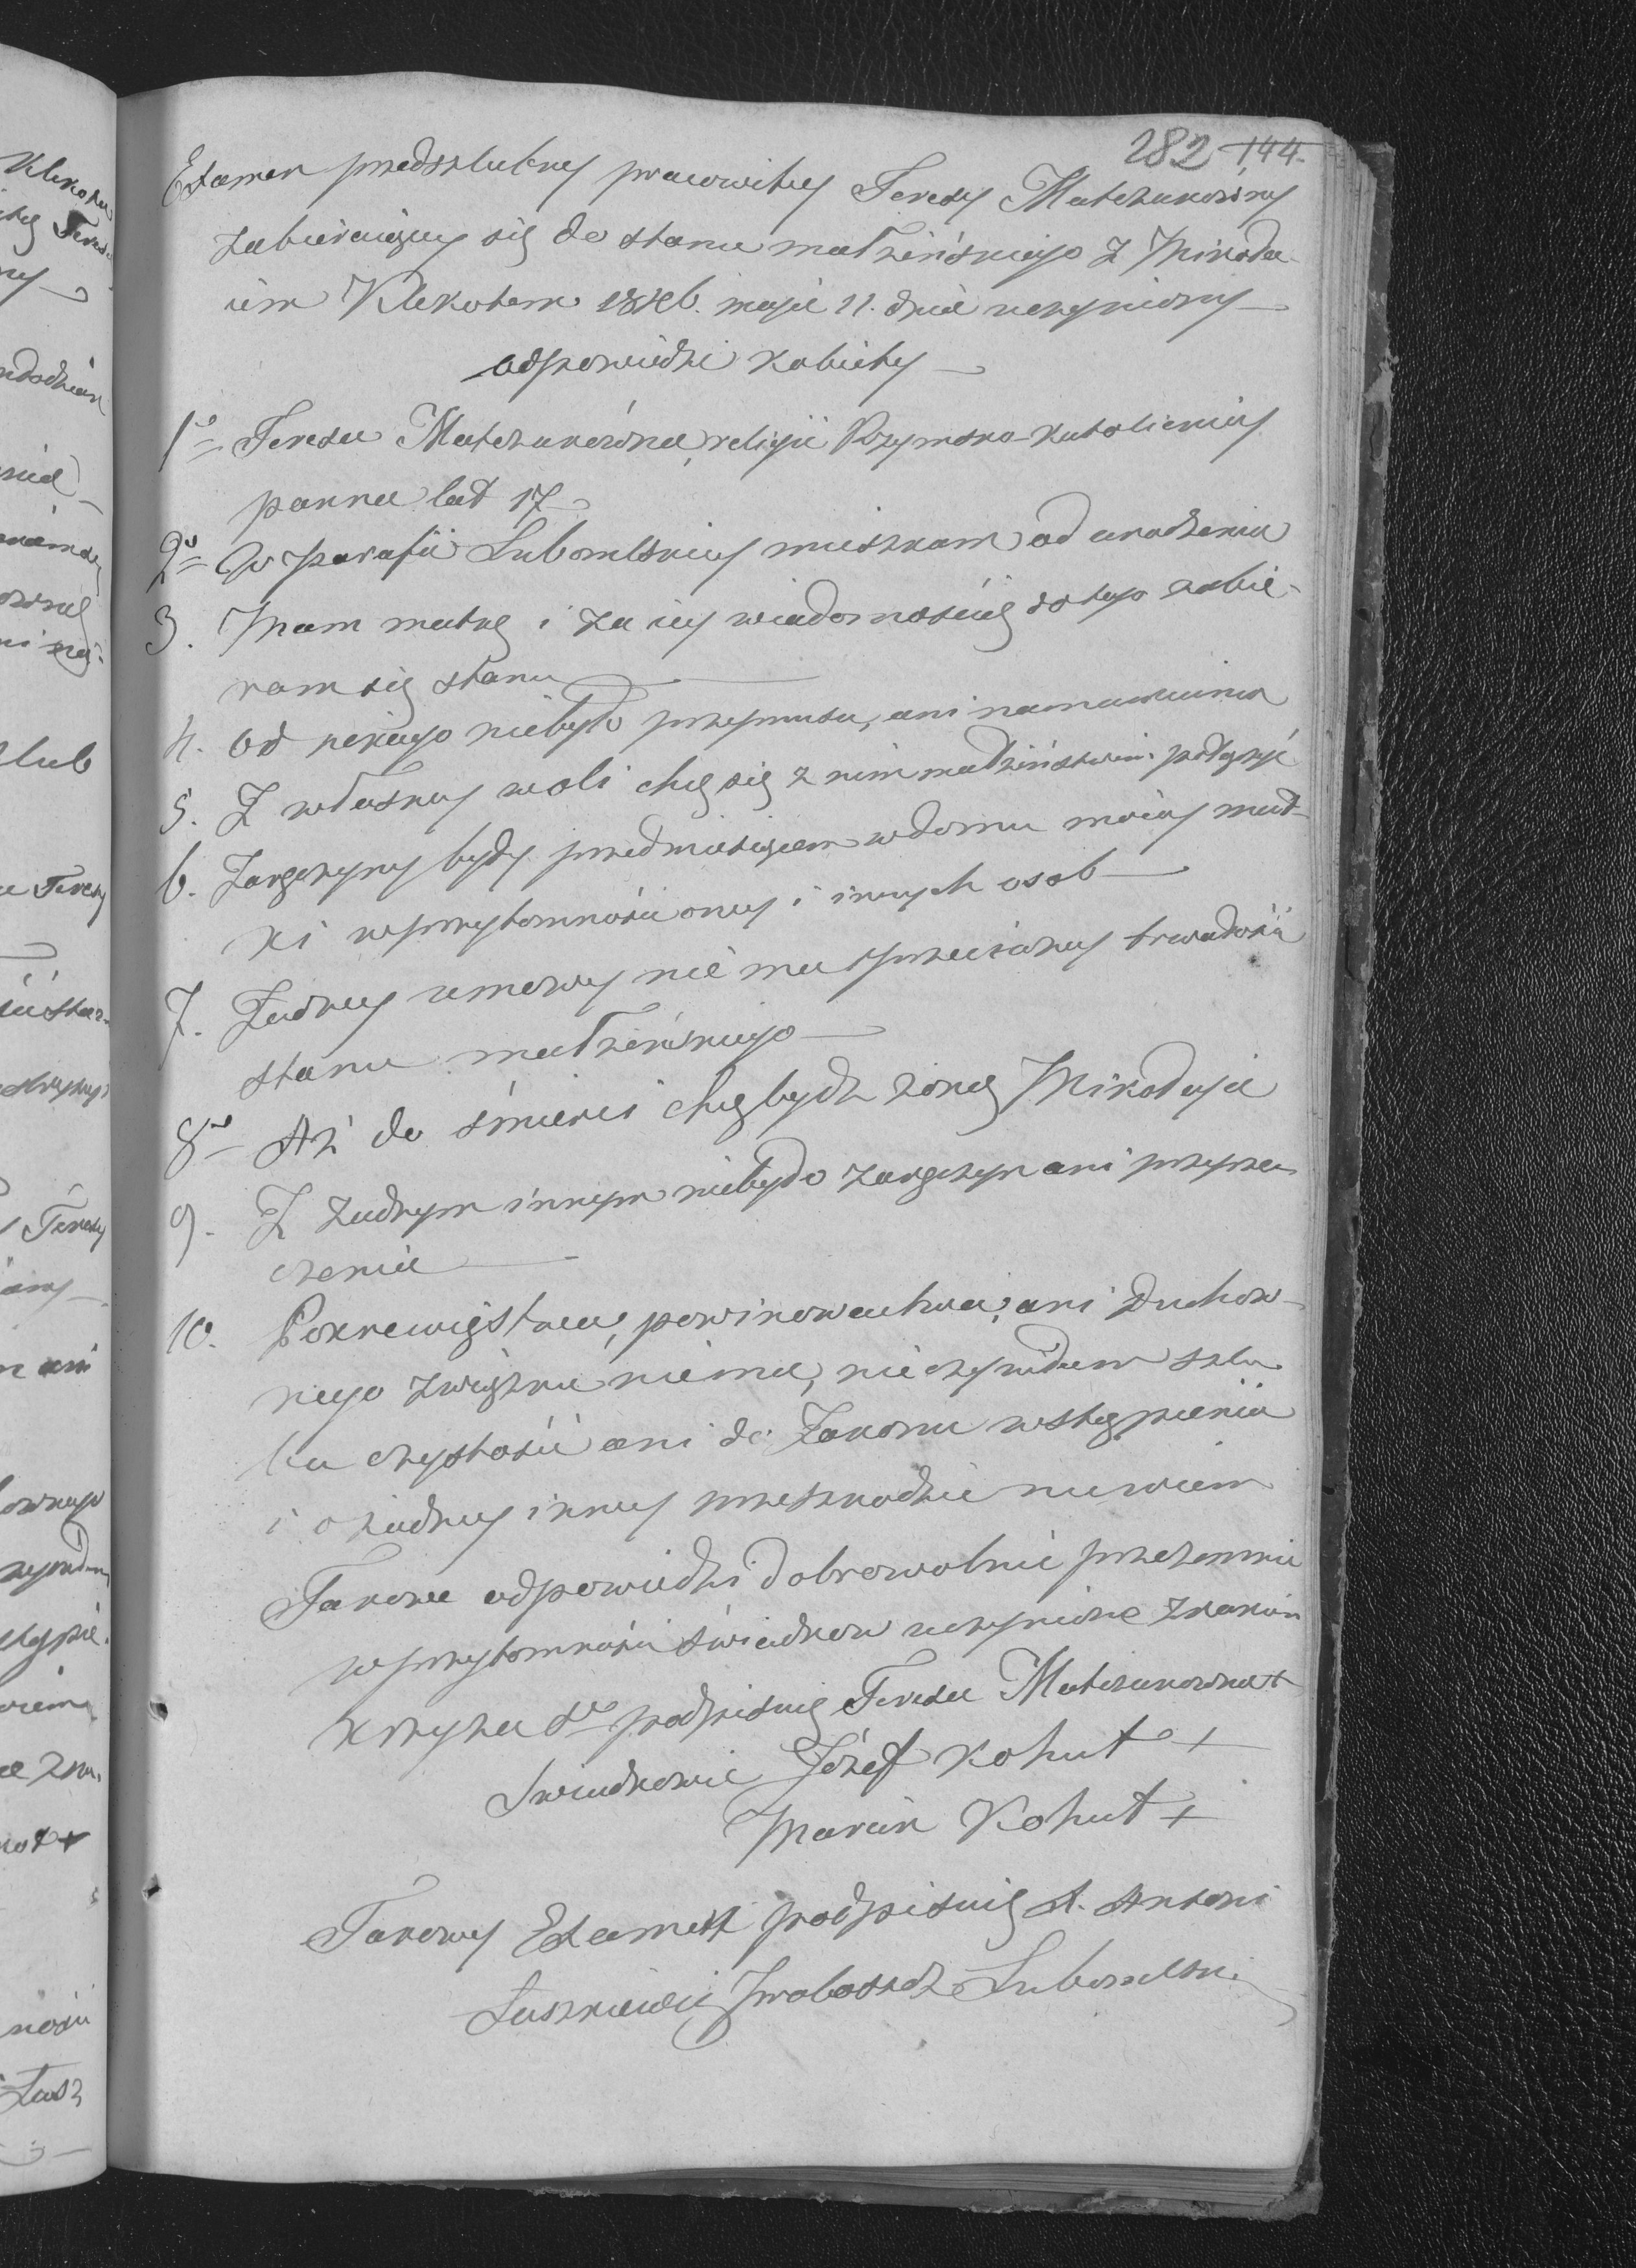 282 144.
Examen przedszlubny pracowitey Teresy Matczukowny
zabieraiącey się do stanu małżeńskiego z Mikoła-
iem Klekotem 1846. maja 11. dnia uczyniony
odpowiedzi kobiety
1o Teresa Matczukówna, religii Rzymsko-Katolickiey
panna lat 17
2o W parafii Lubomlskiey mieszkam od urodzenia
3. Mam matkę i za iey wiadomością do tego zabie-
ram się stanu
4. Od nikogo niebyło przymusu, ani namawiania
5. Z własney woli chcę się z nim małżeństwem połączyć
6. Zaręczyny były przedmiesiącem w domu moiey mat-
ki w przytomności oney i innych osob
7. Żadney umowy nie ma sprzeciwney trwałości
stanu małżeńskiego
8o Aż do śmierci chcę bydź żoną Mikołaja
9. Z żadnym innym niebyło zaręczyn ani przyrze-
czenia
10. Pokrewięstwa, powinowactwa, ani duchow-
nego związku niema, nieczyniłam szlu-
bu czystości ani do Zakonu wstąpienia
i o żadney inney przeszkodzie niewiem
Takowe odpowiedzi dobrowolnie przezemnie
w przytomności świadkow uczynione znakiem
krzyża So podpisuię Teresa Matczukowna +
Swiadkowie Józef Kohut +
Marcin Kohut +
Takowy Examen podpisuię X. Antoni
Łuszkiewicz Proboszcz Lubomlski

Klekotem
Teres
szlub
Teresy
Teresy
ani
Łusz